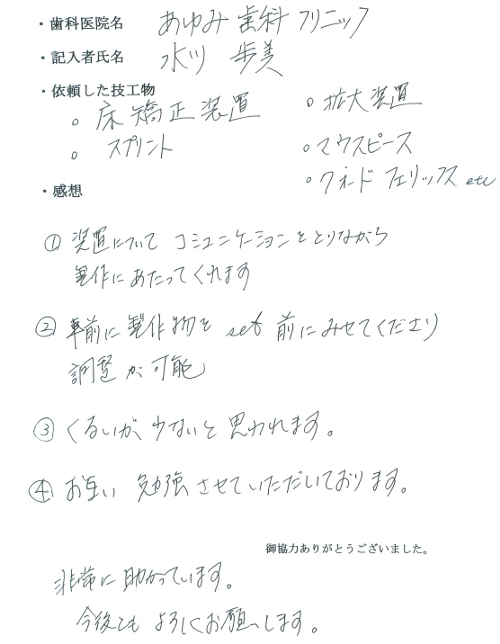 ・歯科医院名 あゆみ歯科クリニック
・記入者氏名 水川 歩美
・依頼した技工物
○ 床矯正装置 ○ 拡大装置
○ スプリント ○ マウスピース
○ クォードフェリックス etc
・感想
① 装置について コミュニケーションをとりながら
製作にあたってくれます
② 事前に製作物を set 前にみせてくださり
調整が可能
③ くるいが少ないと思われます。
④ お互い 勉強させていただいております。
御協力ありがとうございました。
非常に助かっています。
今後ともよろしくお願いします。